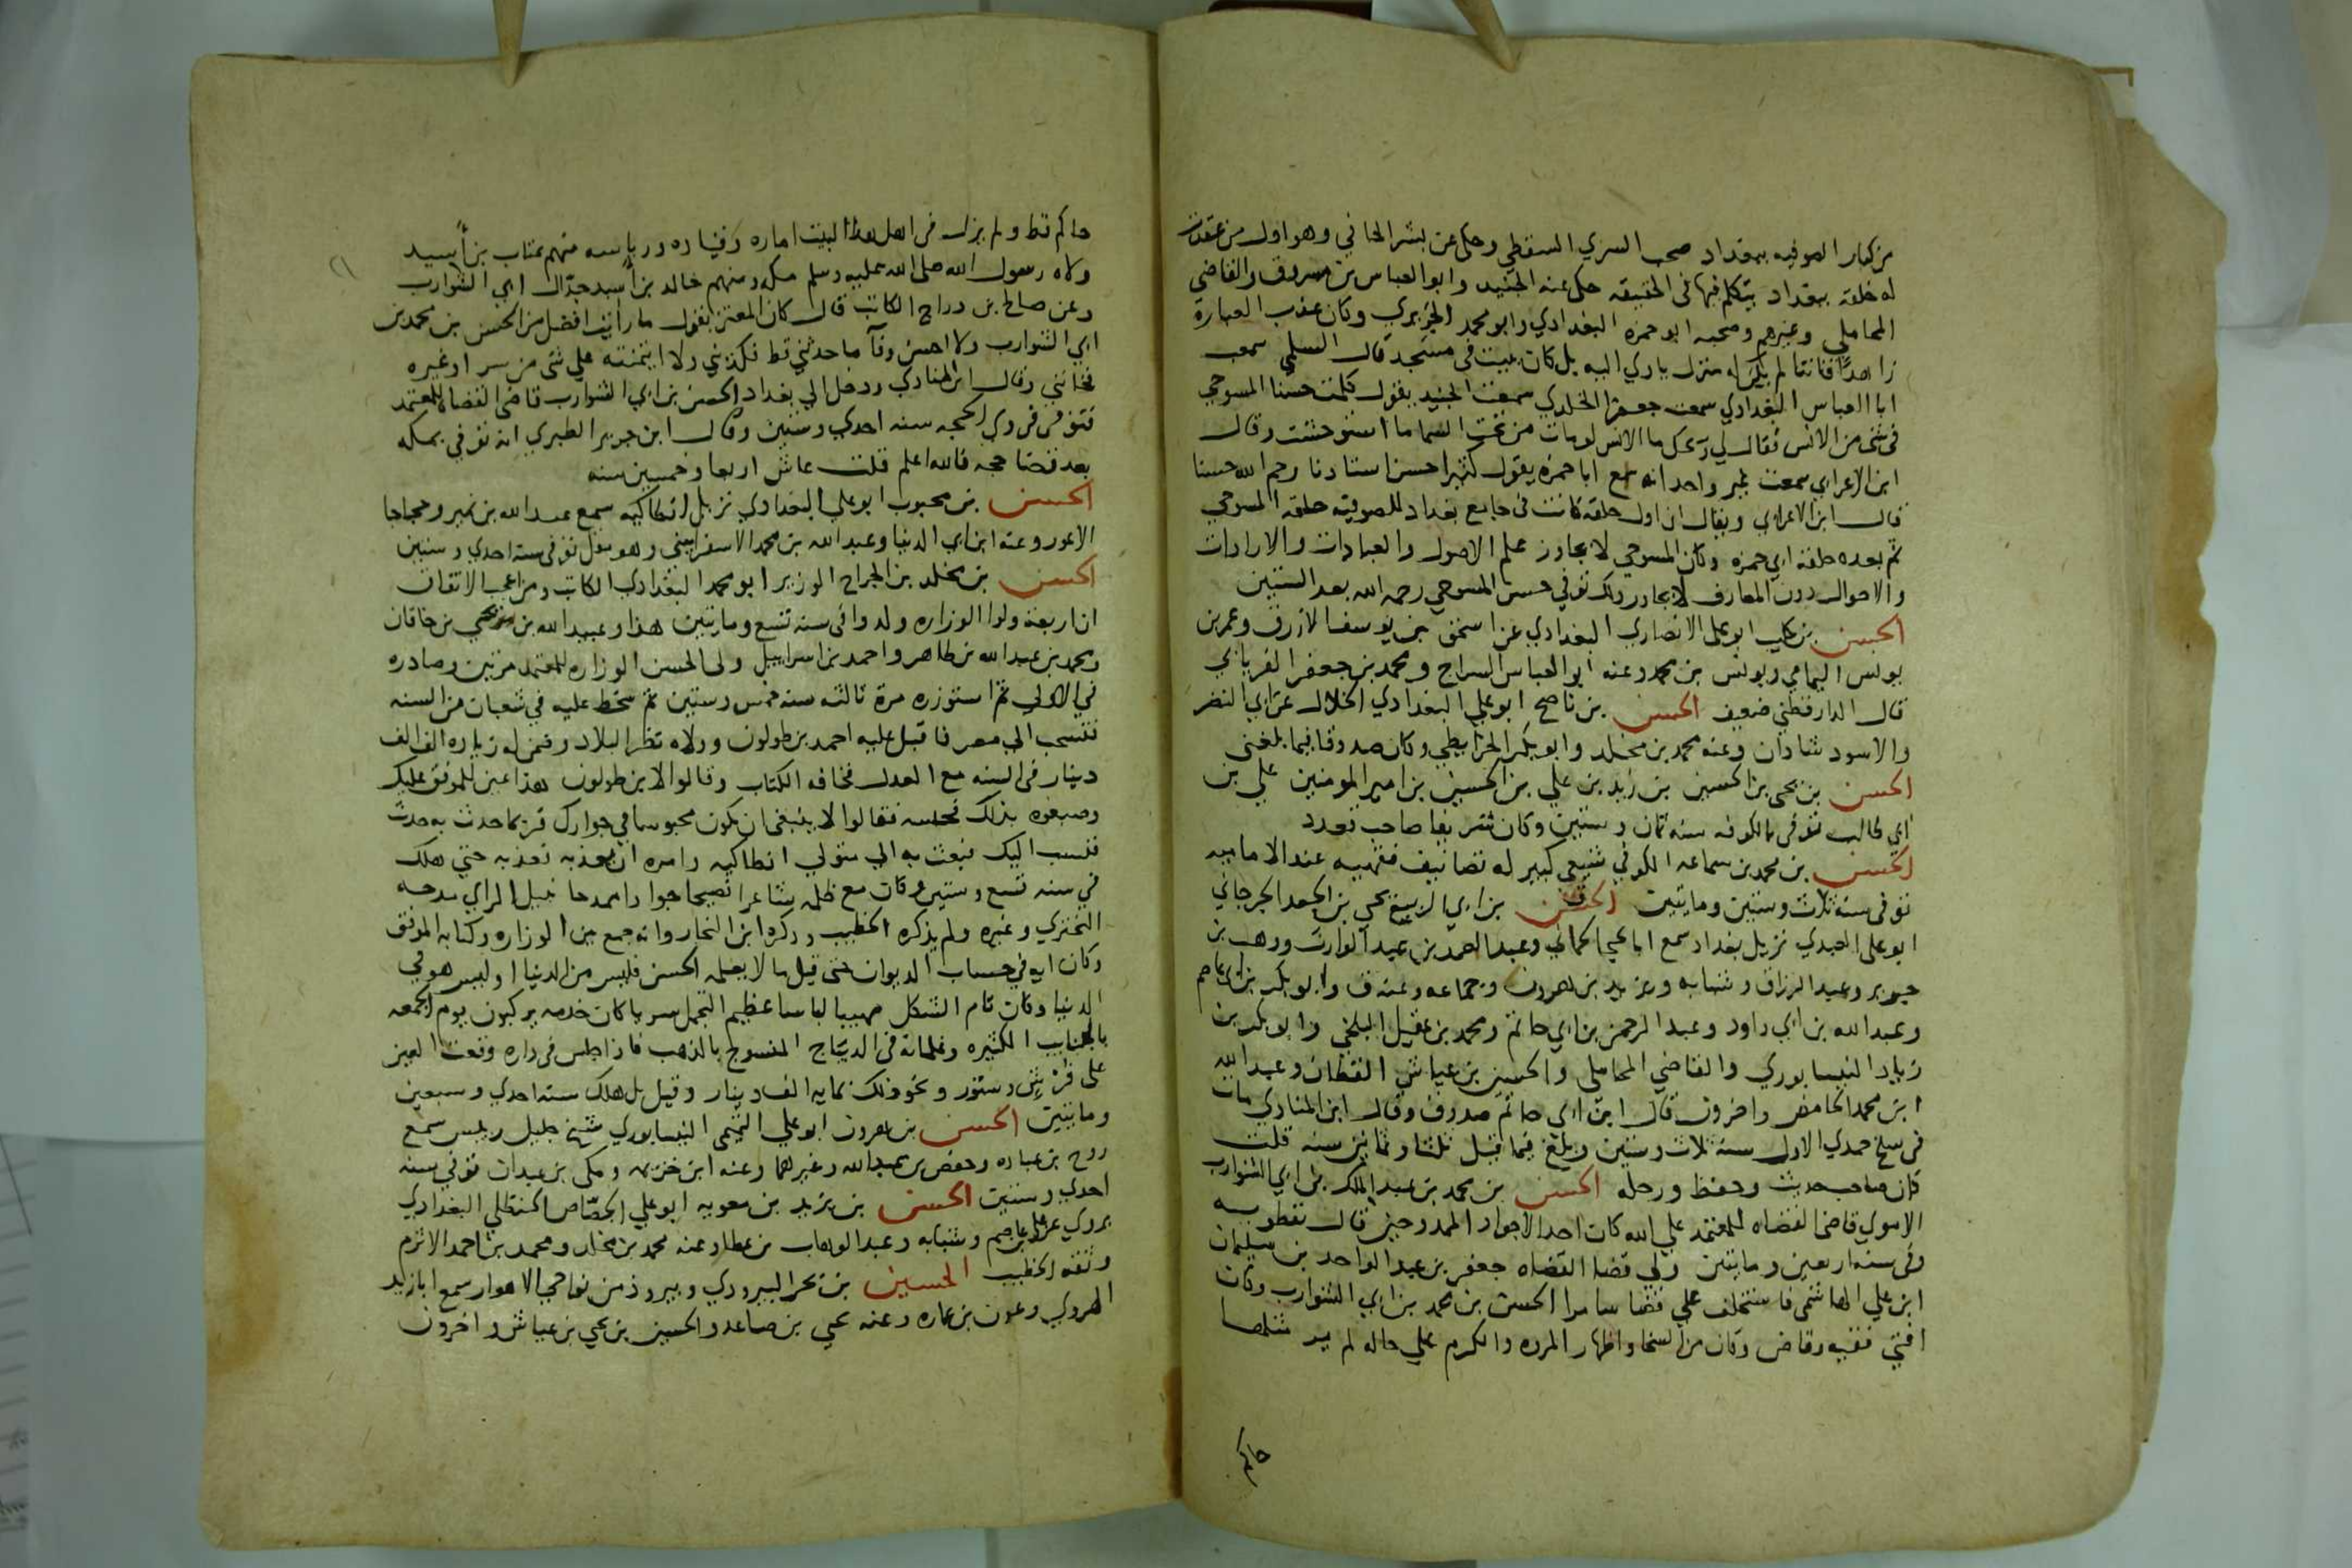 من كبار الصوفيه ببغداد صحب السري السقطي وحكى عن بشر الحافي وهو اول من عقدت
له حلقه ببغداد يتكلم فيها في الحقيقه حكى عنه الجنيد وابو العباس بن مسروق والقاضي
المحاملي وغيرهم وصحبه ابو حمزه البغدادي وابو محمد الجريري وكان عذب العبارة
زاهدًا قانتا لم يكن له منزل ياوي اليه بل كان يبيت في مسجد قال السلمي سمعت
ابا العباس البغدادي سمعت جعفرا الخلدي سمعت الجنيد يقول كلمت حسنا المسوحي
في شي من الانس فقال لي ويحك ما الانس لو مات من تحت السما ما استوحشت وقال
ابن الاعرابي سمعت غير واحد انه سمع ابا حمزه يقول كثيرا حسن استادنا رحم الله حسنا
قال ابن الاعرابي ويقال ان اول حلقه كانت في جامع بغداد للصوفيه حلقه المسوحي
ثم بعده حلقه ابي حمزه وكان المسوحي لا يجاوز علم الاصول والعبادات والارادات
والاحوال دون المعارف لا يجاوز ذلك توفي حسن المسوحي رحمه الله بعد الستين
الحسن بن كليب ابو علي الانصاري البغدادي عن اسحق بن يوسف الازرق وعمر بن
يونس اليمامي ويونس بن محمد وعنه ابو العباس السراج ومحمد بن جعفر الفريابي
قال الدارقطني ضعيف الحسن بن ناصح ابو علي البغدادي الخلال عن ابي النضر
والاسود شادان وعنه محمد بن مخلد وابو بكر الخرايطي وكان صدوقا فيما بلغني
الحسن بن يحيى بن الحسين بن زيد بن علي بن الحسين بن امير المومنين علي بن
ابي طالب توفي بالكوفه سنه ثمان وستين وكان شريفا صاحب تعدد
الحسن بن محمد بن سماعه الكوفي شيعي كبير له تصانيف فقهيه عند الاماميه
توفي سنه ثلاث وستين ومايتين الحسن بن ابي الربيع يحيى بن الجعد الجرجاني
ابو علي العبدي نزيل بغداد سمع ابا يحيى الحماني وعبد الصمد بن عبد الوارث ووهب بن
جرير وعبد الرزاق وشبابه ويزيد بن هرون وجماعه وعنه ق وابو بكر بن ابي عاصم
وعبد الله بن ابي داود وعبد الرحمن بن ابي حاتم ومحمد بن عقيل البلخي وابو بكر بن
زياد النيسابوري والقاضي المحاملي والحسين بن عياش القطان وعبد الله
ابن محمد الحامض واخرون قال ابن ابي حاتم صدوق وقال ابن المنادي مات
في سلخ جمدي الاول سنه ثلاث وستين وبلغ فيما قيل ثلثا وثمانين سنه قلت
كان صاحب حديث وحفظ ورحله الحسن بن محمد بن عبد الملك بن ابي الشوارب
الاموي قاضي القضاه للمعتمد علي الله كان احد الاجواد الممدوحين قال نفطويه
وفي سنه اربعين ومايتين ولي قضا القضاه جعفر بن عبد الواحد بن سليمان
ابن علي الهاشمي فاستخلف علي قضا سامرا الحسن بن محمد بن ابي الشوارب وكان
افتي فقيه وقاض وكان من السخا واظهار المروه والكرم علي حاله لم ير مثلها
حاكم
حاكم قط ولم يزل في اهل هذا البيت اماره وقياده ورياسه منهم عتاب بن أسيد
ولاه رسول الله صلى الله عليه وسلم مكه ومنهم خالد بن أسيد جد ال ابي الشوارب
وعن صالح بن دراج الكاتب قال كان المعتز يقول ما رأيت افضل من الحسن بن محمد بن
ابي الشوارب ولا احسن وفآ ما حدثني قط فكذبني ولا ايتمنته علي شي من سر او غيره
فخانني وقال ابن المنادي ودخل الي بغداد الحسن بن ابي الشوارب قاضي القضاه للمعتمد
فتوفي في ذي الحجه سنه احدي وستين وقال ابن جرير الطبري انه توفي بمكه
بعد قضا حجه فالله اعلم قلت عاش اربعا وخمسين سنه
الحسن بن محبوب ابو علي البغدادي نزيل انطاكيه سمع عبد الله بن نمير وحجاجا
الاعور وعنه ابن ابي الدنيا وعبد الله بن محمد الاسفراييني وهو موثق توفي سنه احدي وستين
الحسن بن مخلد بن الجراح الوزير ابو محمد البغدادي الكاتب ومن اعجب الاتفاق
ان اربعة ولوا الوزاره ولدوا في سنه تسع ومايتين هذا وعبيد الله بن يحيي بن خاقان
ومحمد بن عبد الله بن طاهر واحمد بن اسراييل ولي الحسن الوزاره للمعتمد مرتين وصادره
في الاولي ثم استوزره مرة ثالثه سنه خمس وستين ثم سخط عليه في شعبان من السنه
فتسحب الي مصر فاقبل عليه احمد بن طولون وولاه نظر البلاد وضمن له زياده الف الف
دينار في السنه مع العدل فخافه الكتاب وقالوا لابن طولون هذا عين للموفق عليك
وصبغوه بذلك فحبسه فقالوا لا ينبغي ان يكون محبوسا في جوارك فربما حدث به حدث
فنسب اليك فبعث به الي متولي انطاكيه وامره ان يعذبه فعذبه حتي هلك
في سنه تسع وستين وكان مع ظلمه شاعرا فصيحا جوادا ممدحا نبيل الراي مدحه
البحتري وغيره ولم يذكره الخطيب وذكره ابن النجار وانه جمع بين الوزاره وكتابه الموفق
وكان ايه في حساب الديوان حتى قيل ما لا يعلمه الحسن فليس من الدنيا او ليس هو في
الدنيا وكان تام الشكل مهيبا لباسا عظيم التجمل سريا كان خدمه يركبون يوم الجمعه
بالجنايب الكثيره وغلمانه في الديباج المنسوج بالذهب فاذا جلس في داره وقعت العين
على فرش وستور ونحو ذلك نمايه الف دينار وقيل بل هلك سنه احدي وسبعين
ومايتين الحسن بن هرون ابو علي التيمي النيسابوري شيخ جليل رييس سمع
روح بن عباده وحفص بن عبد الله وغيرهما وعنه ابن خزيمه ومكي بن عبدان توفي سنه
احدي وستين الحسن بن يزيد بن معويه ابو علي الجصّاص الحنظلي البغدادي
يروي عن علي بن عاصم وشبابه وعبد الوهاب بن عطا وعنه محمد بن مخلد ومحمد بن احمد الاثرم
وثقه الخطيب الحسين بن بحر البيروذي وبيروذ من نواحي الاهواز سمع ابا زيد
الهروي وعون بن عماره وعنه يحيي بن صاعد والحسين بن يحيي بن عياش واخرون